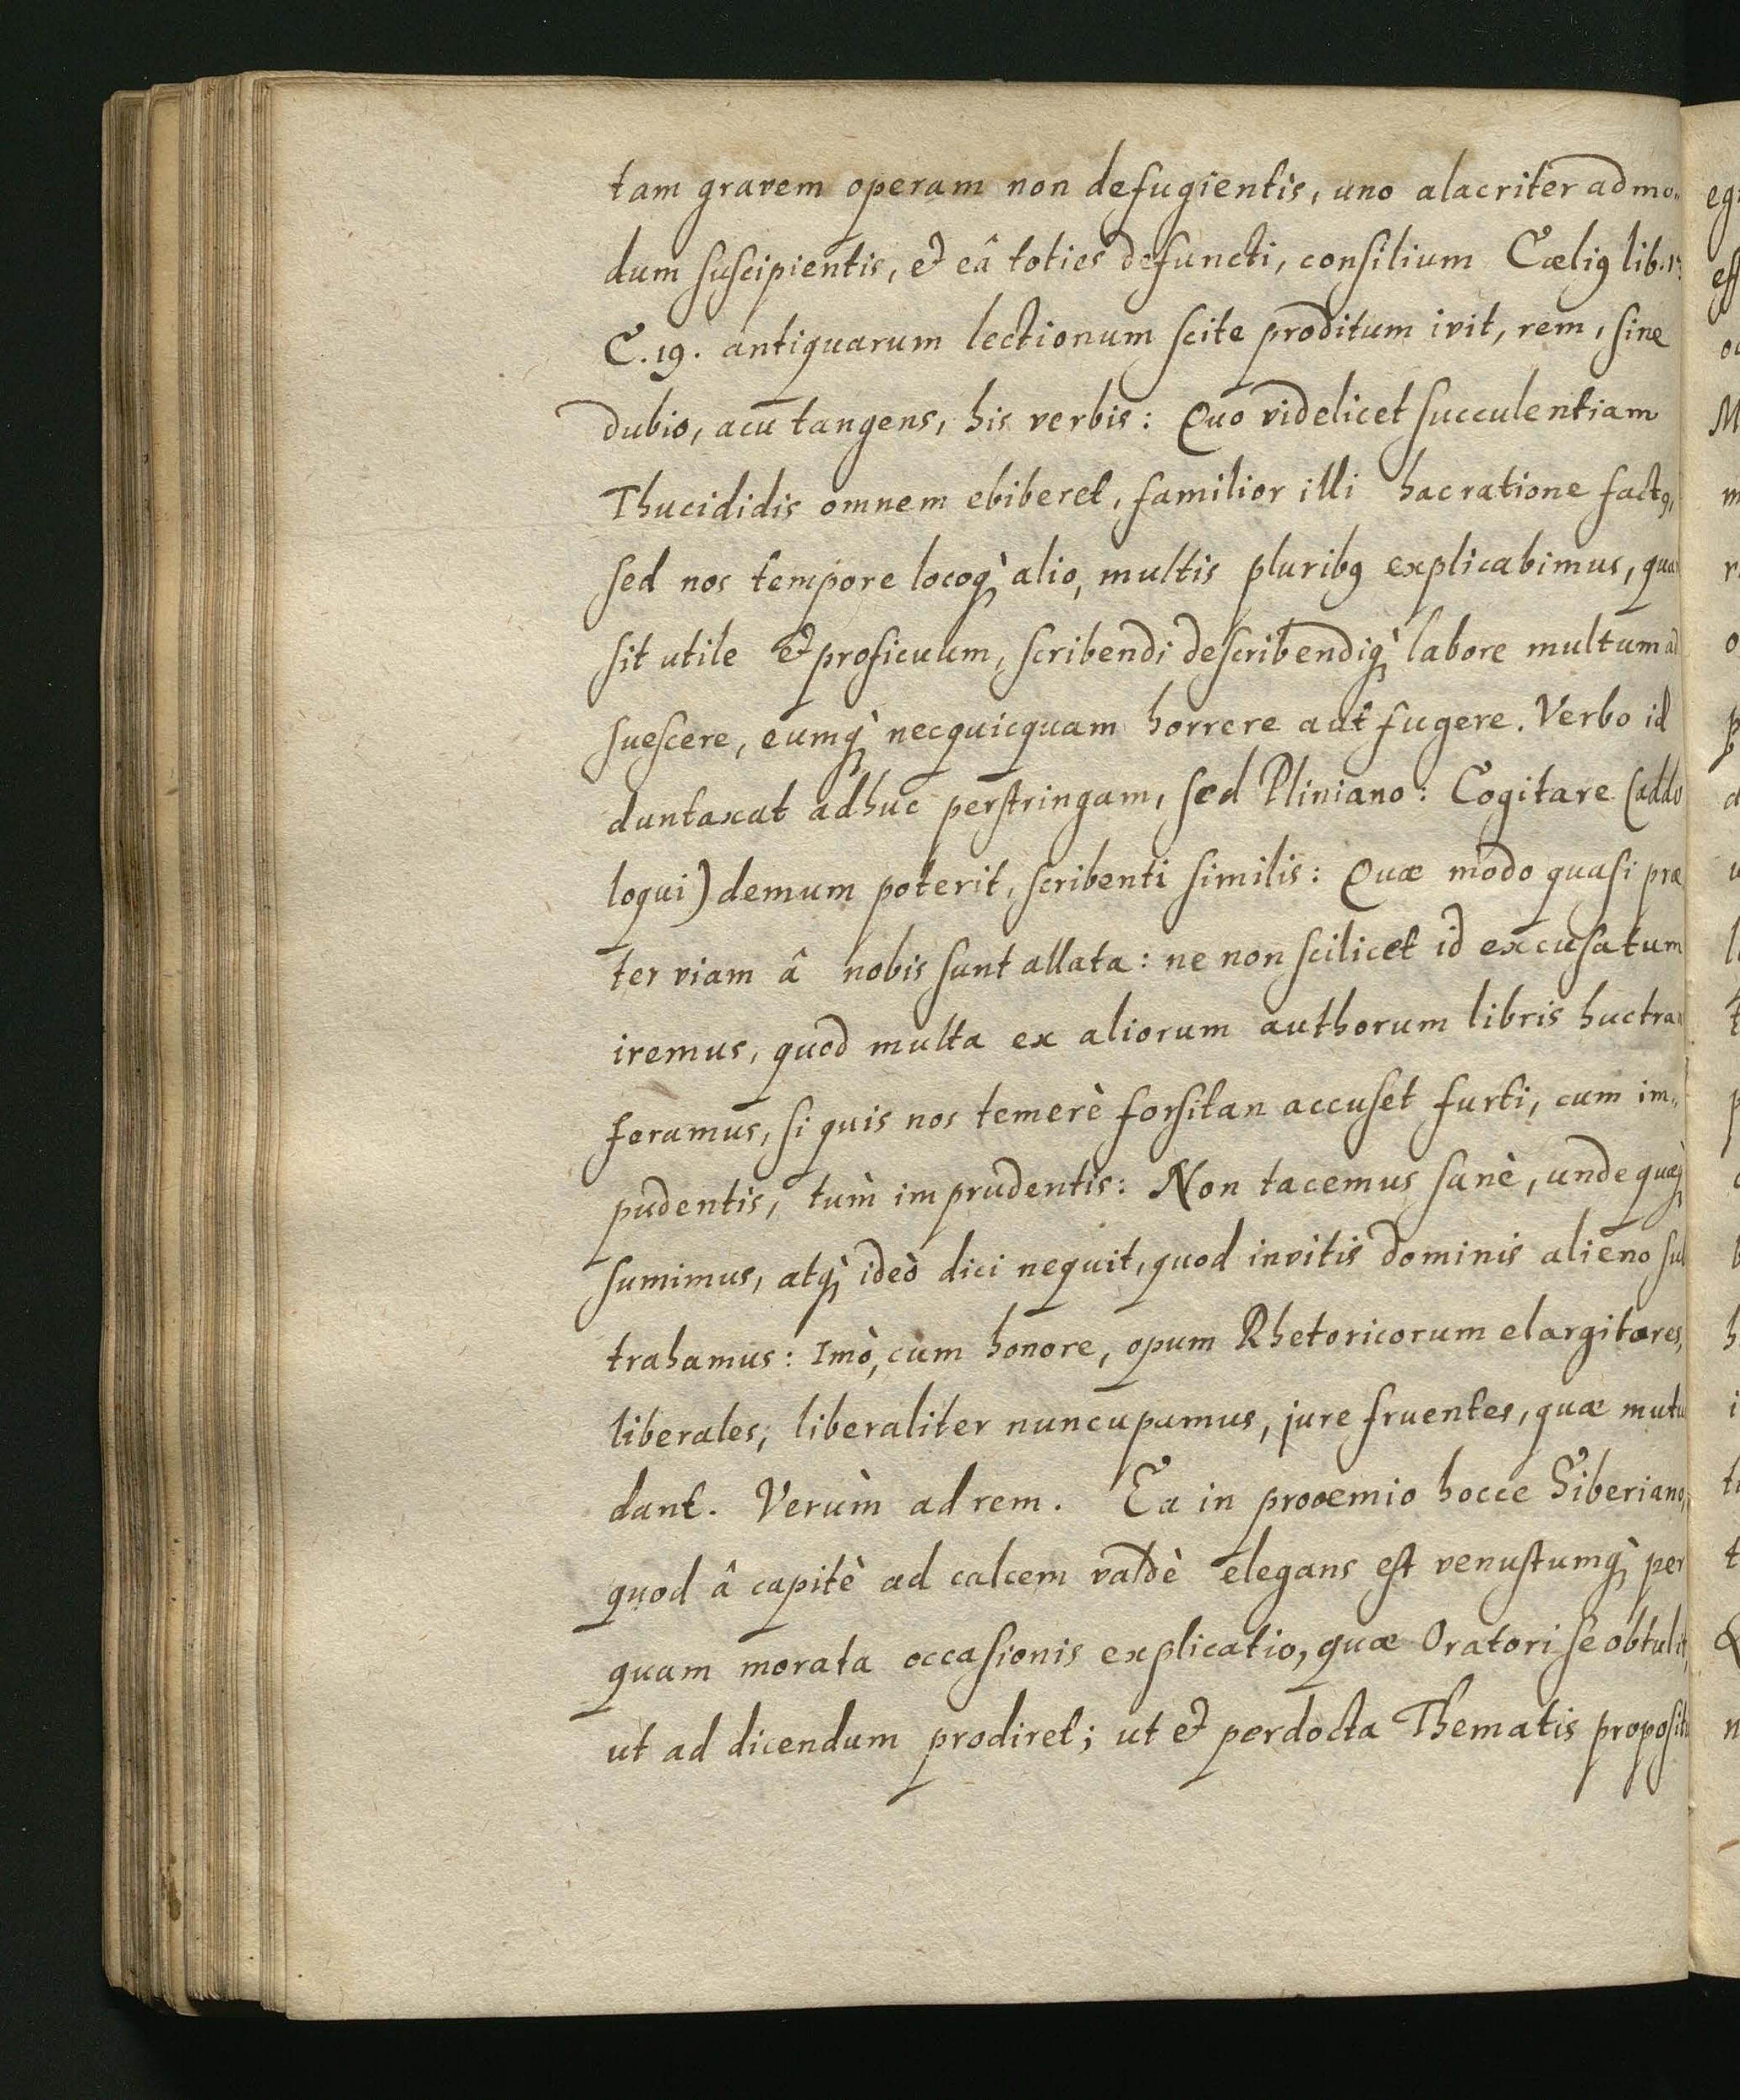 tam gravem operam non defugientis, uno alacriter admo„
dum suscipientis, & eâ toties defuncti, consilium Cæliꝰ lib.
C. 19. antiquarum lectionum scite proditum ivit, rem, sine
dubio, acu tangens, his verbis: Quo videlicet succulentiam
Thucididis omnem ebiberet, familior illi hac ratione factꝰ,
sed nos tempore locoq̀ꝫ alio, multis pluribꝰ explicabimus, qua
sit utile & proficuum, scribendi describendiq̀ꝫ labore multum ad
suescere, eumq̀ꝫ necquicquam horrere aut fugere. Verbo id
duntaxat adhuc perstringam, sed Pliniano: Cogitare (addo
loqui) demum poterit, scribenti similis: Quæ modo quasi præ
ter viam â nobis sunt allata: ne non scilicet id excusatum
iremus, quod multa ex aliorum authorum libris huc tran
feramus, si quis nos temerè forsitan accuset furti, cum im„
pudentis, tum̀ imprudentis: Non tacemus sanè, unde quæq̀ꝫ
sumimus, atq̀ꝫ ideò dici nequit, quod invitis dominis alieno sub
trahamus: Imò, cum honore, opum Rhetoricorum elargitores,
liberales, liberaliter nuncupamus, jure fruentes, quæ mutu
dant. Verùm ad rem. Ea in prooemio hocce Siberiano,
quod â capitè ad calcem valdè elegans est venustumq̀ꝫ per
quam morata occasionis explicatio, quæ Oratori se obtulit,
ut ad dicendum prodiret; ut & perdocta Thematis proposit